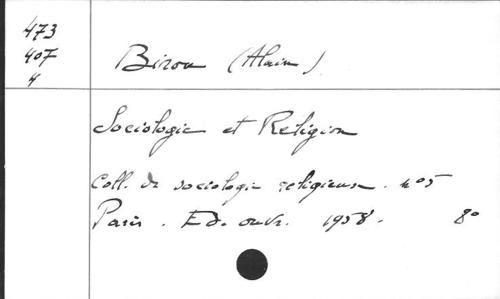 473
407
4
Birou (Alain)
Sociologie et Religion
Coll. de sociologie religieuse. n°5
Paris. Ed. ouvr. 1958. 8°